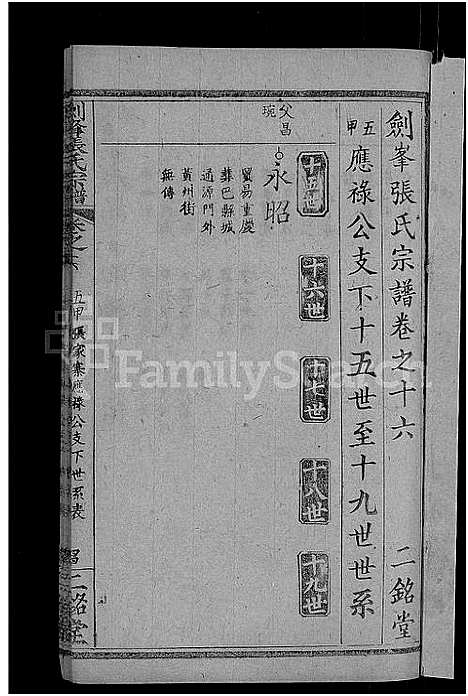 劍峯張氏宗譜卷之十六 二銘堂
五甲 應祿公支下十五世至十九世世系
十五世
十六世
十七世
十八世
十九世
父昌琬
永昭
貿易重慶
葬巴縣城
通源門外
黃州街
無傳
劍峯張氏宗譜
卷之十六
五甲張家寨應祿公支下世系表
二銘堂
FamilySearch